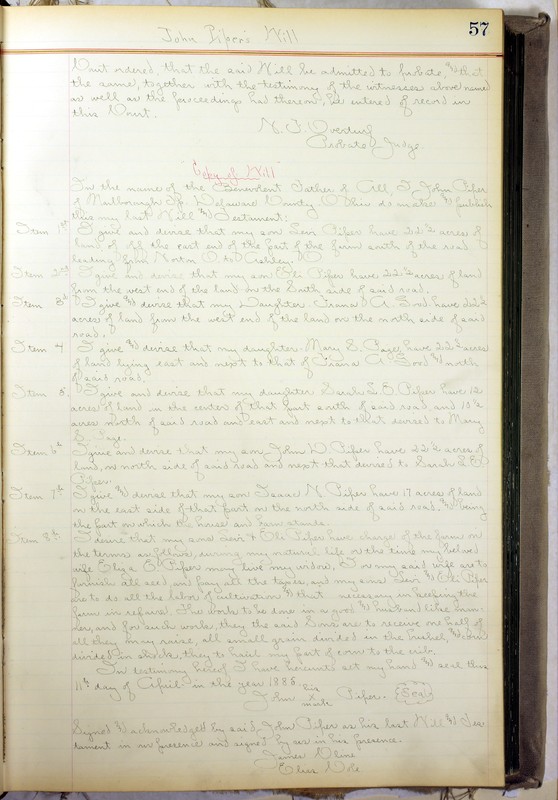 John Piper's Will
57
Court ordered, that the said Will be admitted to probate, & that
the same, together with the testimony of the witnesses above named
as well as the proceedings had thereon, be entered of record in
this Court.
N. F. Overturf
Probate Judge.
Copy of Will
In the name of the Benevolent Father of All, I, John Piper
of Marlborough Tp. Delaware County, Ohio do make & publish
this my last Will & Testament:
Item 1st I give and devise that my son Levi Piper have 22½ acres of
land, of off the east end of the part of the farm south of the road
leading from Norton O to Ashley O
Item 2nd I give and devise that my son Eli Piper have 22½ acres of land
from the west end of the land on the South side of said road.
Item 3d I give & devise that my Daughter A. have 22½
acres of land from the west end of the land on the north side of said
road.
Item 4 I give & devise that my daughter Mary S. Page, have 22½ acres
of land lying east and next to that of A. & north
of said road.
Item 5. I give and devise that my daughter Sarah L. O. Piper have 12
acres of land in the center of that part south of said road, and 10½
acres north of said road and east and next to that devised to Mary
S. Page.
Item 6th I give and devise that my son John W. Piper have 22½ acres of
land, on north side of said road and next that devised to Sarah L. O
Piper.
Item 7th I give & devise that my son Isaac N. Piper have 17 acres of land
on the east side of that part on the north side of said road, & being
the part on which the house and barn stands.
Item 8th I desire that my sons Levi & Eli Piper have charge of the farm on
the terms as follows, during my natural life or the time my beloved
wife Eliza Piper may live my widow, I or my said wife are to
furnish all seed, and pay all the taxes, and my sons Levi & Eli Piper
are to do all the labor of cultivation & that necessary in keeping the
farm in repair. The works to be done in a good & husband like man-
ner, and for such works, they the said Sons are to receive one half of
all they may raise, all small grain divided in the bushel, & corn
divided in shocks, they to haul my part of corn to the crib.
In testimony hereof I have hereunto set my hand & seal this
11th day of April in the year 1885.
John his x mark Piper. (Seal)
Signed & acknowledged by said John Piper as his last Will & Tes-
tament in our presence and signed by us in his presence.
James Cline
Elias Cole